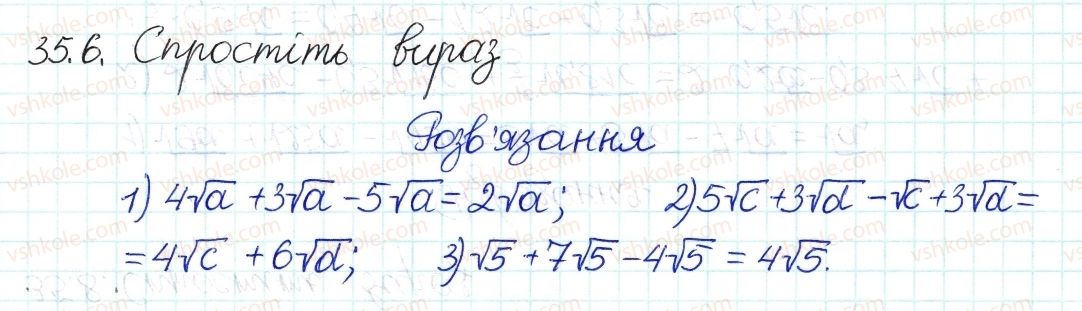 35.6. Спростіть вираз
Розв'язання
1) 4√a + 3√a - 5√a = 2√a; 2) 5√c + 3√d - √c + 3√d =
= 4√c + 6√d; 3) √5 + 7√5 - 4√5 = 4√5.